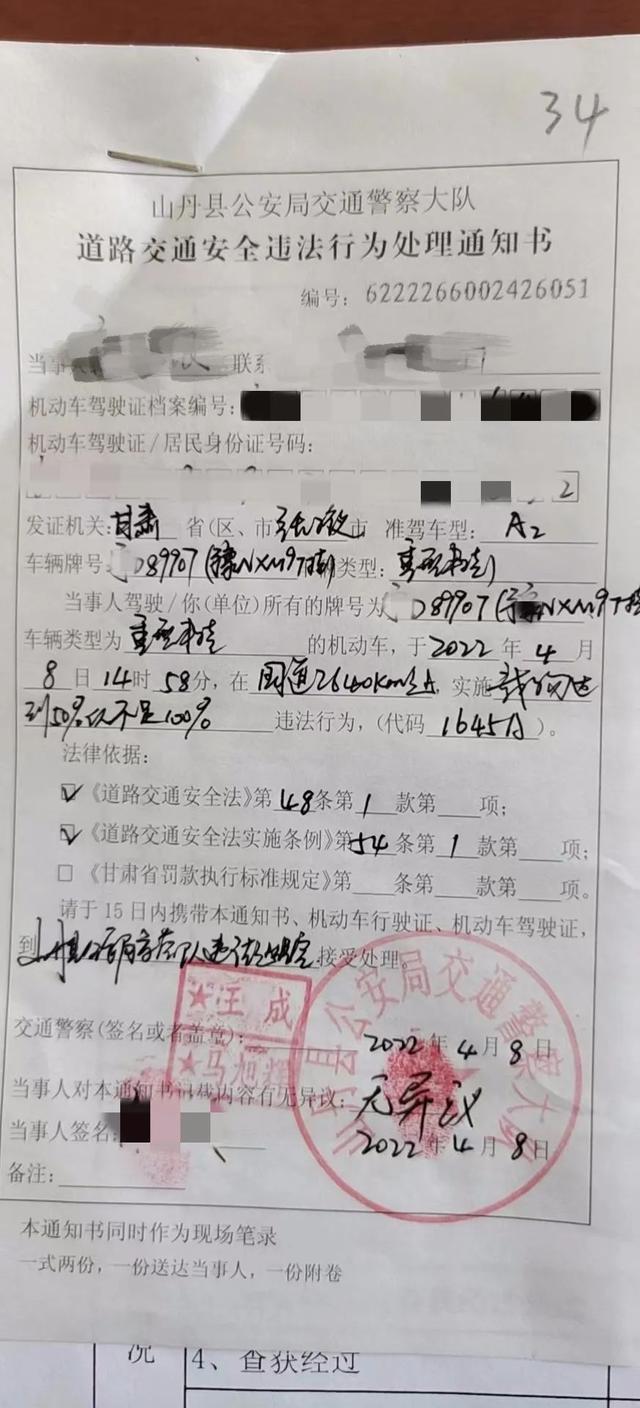 34
山丹县公安局交通警察大队
道路交通安全违法行为处理通知书
编号：6222266002426051
当事 联系
机动车驾驶证档案编号：
机动车驾驶证/居民身份证号码：
2
发证机关：甘肃 省(区、市 张掖 市 准驾车型：A2
车辆牌号 D89907 (NXM97挂) 类型：重型
当事人驾驶/你(单位)所有的牌号为 D89907 (NXM97挂
车辆类型为 重型 的机动车，于2022年4月
8日14时58分，在 国道 2640km 实施
到50%以不足100% 违法行为，(代码 1645A)。
法律依据：
☑《道路交通安全法》第48条第1款第 项；
☑《道路交通安全法实施条例》第54条第1款第 项；
□《甘肃省罚款执行标准规定》第 条第 款第 项。
请于15日内携带本通知书、机动车行驶证、机动车驾驶证，
到山丹县 接受处理。
交通警察(签名或者盖章)：
★汪成
★马旭辉
2022年4月8日
当事人对本通知书记载内容有无异议：无异议
当事人签名：
2022年4月8日
备注：
山丹县公安局交通警察大队
本通知书同时作为现场笔录
一式两份，一份送达当事人，一份附卷
况
4、查获经过